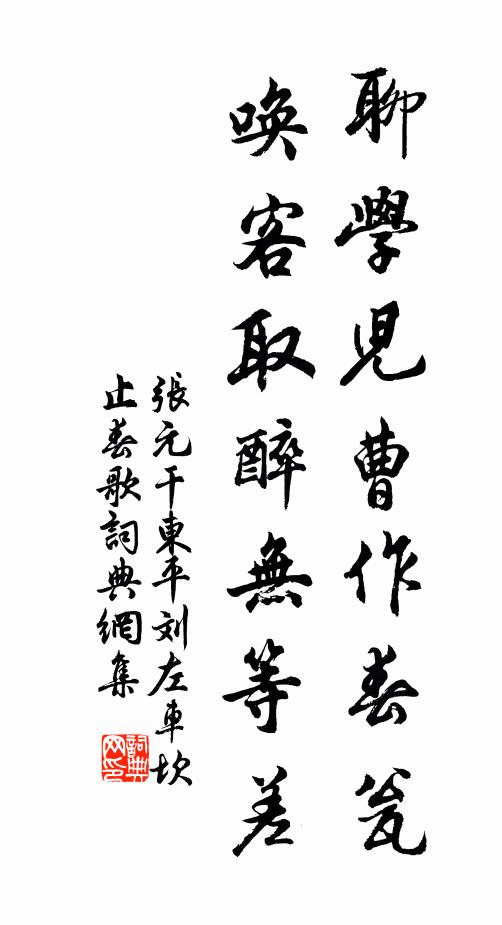 聊學児曹作春瓮
喚客取醉無等差
張元干東平刘左車坎
止春歌詞典網集
詞典网印